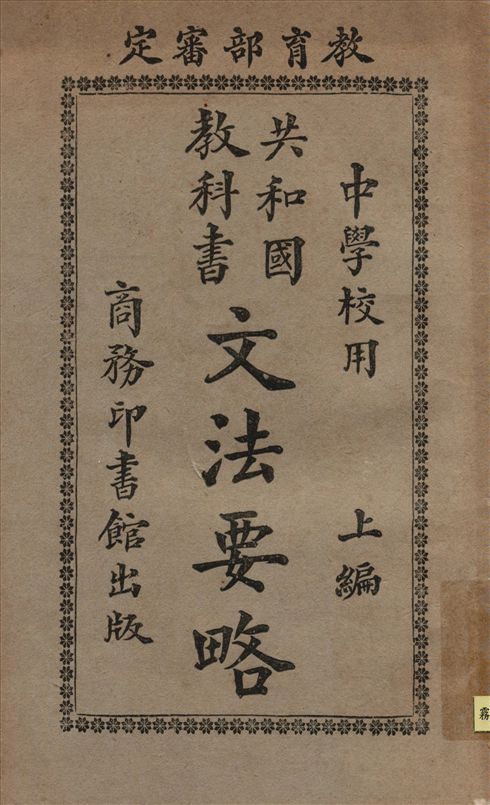 教育部審定
中學校用 上編
共和國
教科書
文法要略
商務印書館出版
霧